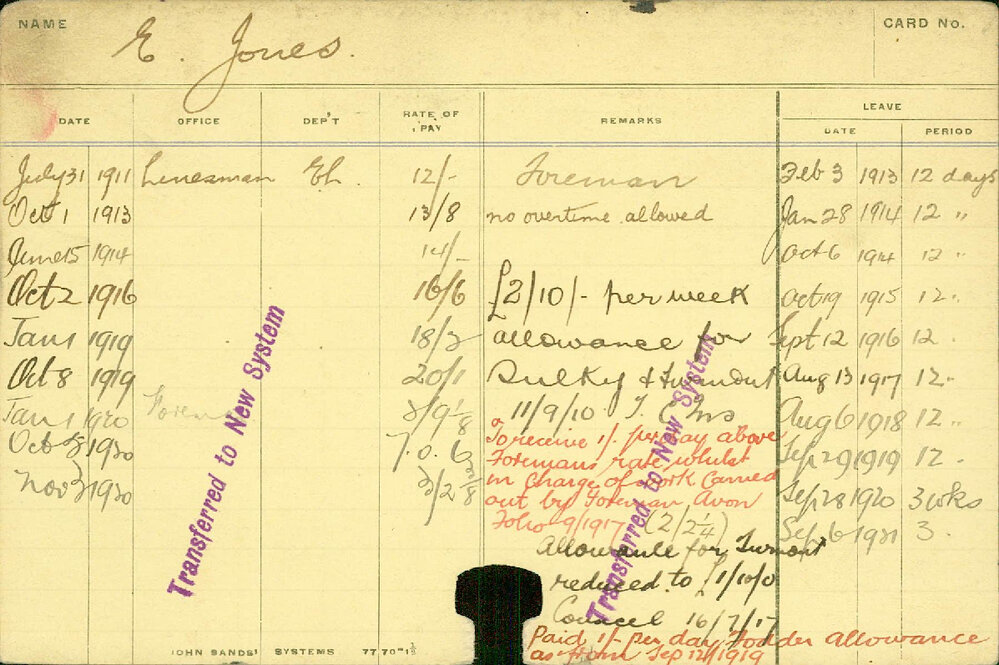 NAME E. Jones. CARD No.
LEAVE
DATE OFFICE DEP'T RATE OF PAY REMARKS DATE PERIOD
July 31 1911 Linesman El. 12/- Foreman Feb 3 1913 12 days
Oct 1 1913 13/8 no overtime allowed Jan 28 1914 12 "
June 15 1914 14/- Oct 6 1914 12 "
Oct 2 1916 16/6 £2/10/- per week Oct 19 1915 12 "
Jan 1 1919 18/3 allowance for Sept 12 1916 12 "
Oct 8 1919 20/1 Sulky & Turnout Aug 13 1917 12 "
Jan 1 1920 11/9/10 T. Aug 6 1918 12 "
Oct 1920 To receive 1/- per day above Sep 29 1919 12 "
Foremans rate whilst
Nov 3 1920 in Charge of work Carried Sep 28 1920 3 wks
out by Foreman Avon
Folio 9/1917 Sep 6 1921 3 "
Allowance for Turnout
reduced to £1/10/0
16/7/17
Paid 1/- per day Fodder allowance
as from Sep 12th 1919
Transferred to New System
Transferred to New System
JOHN SANDS' SYSTEMS